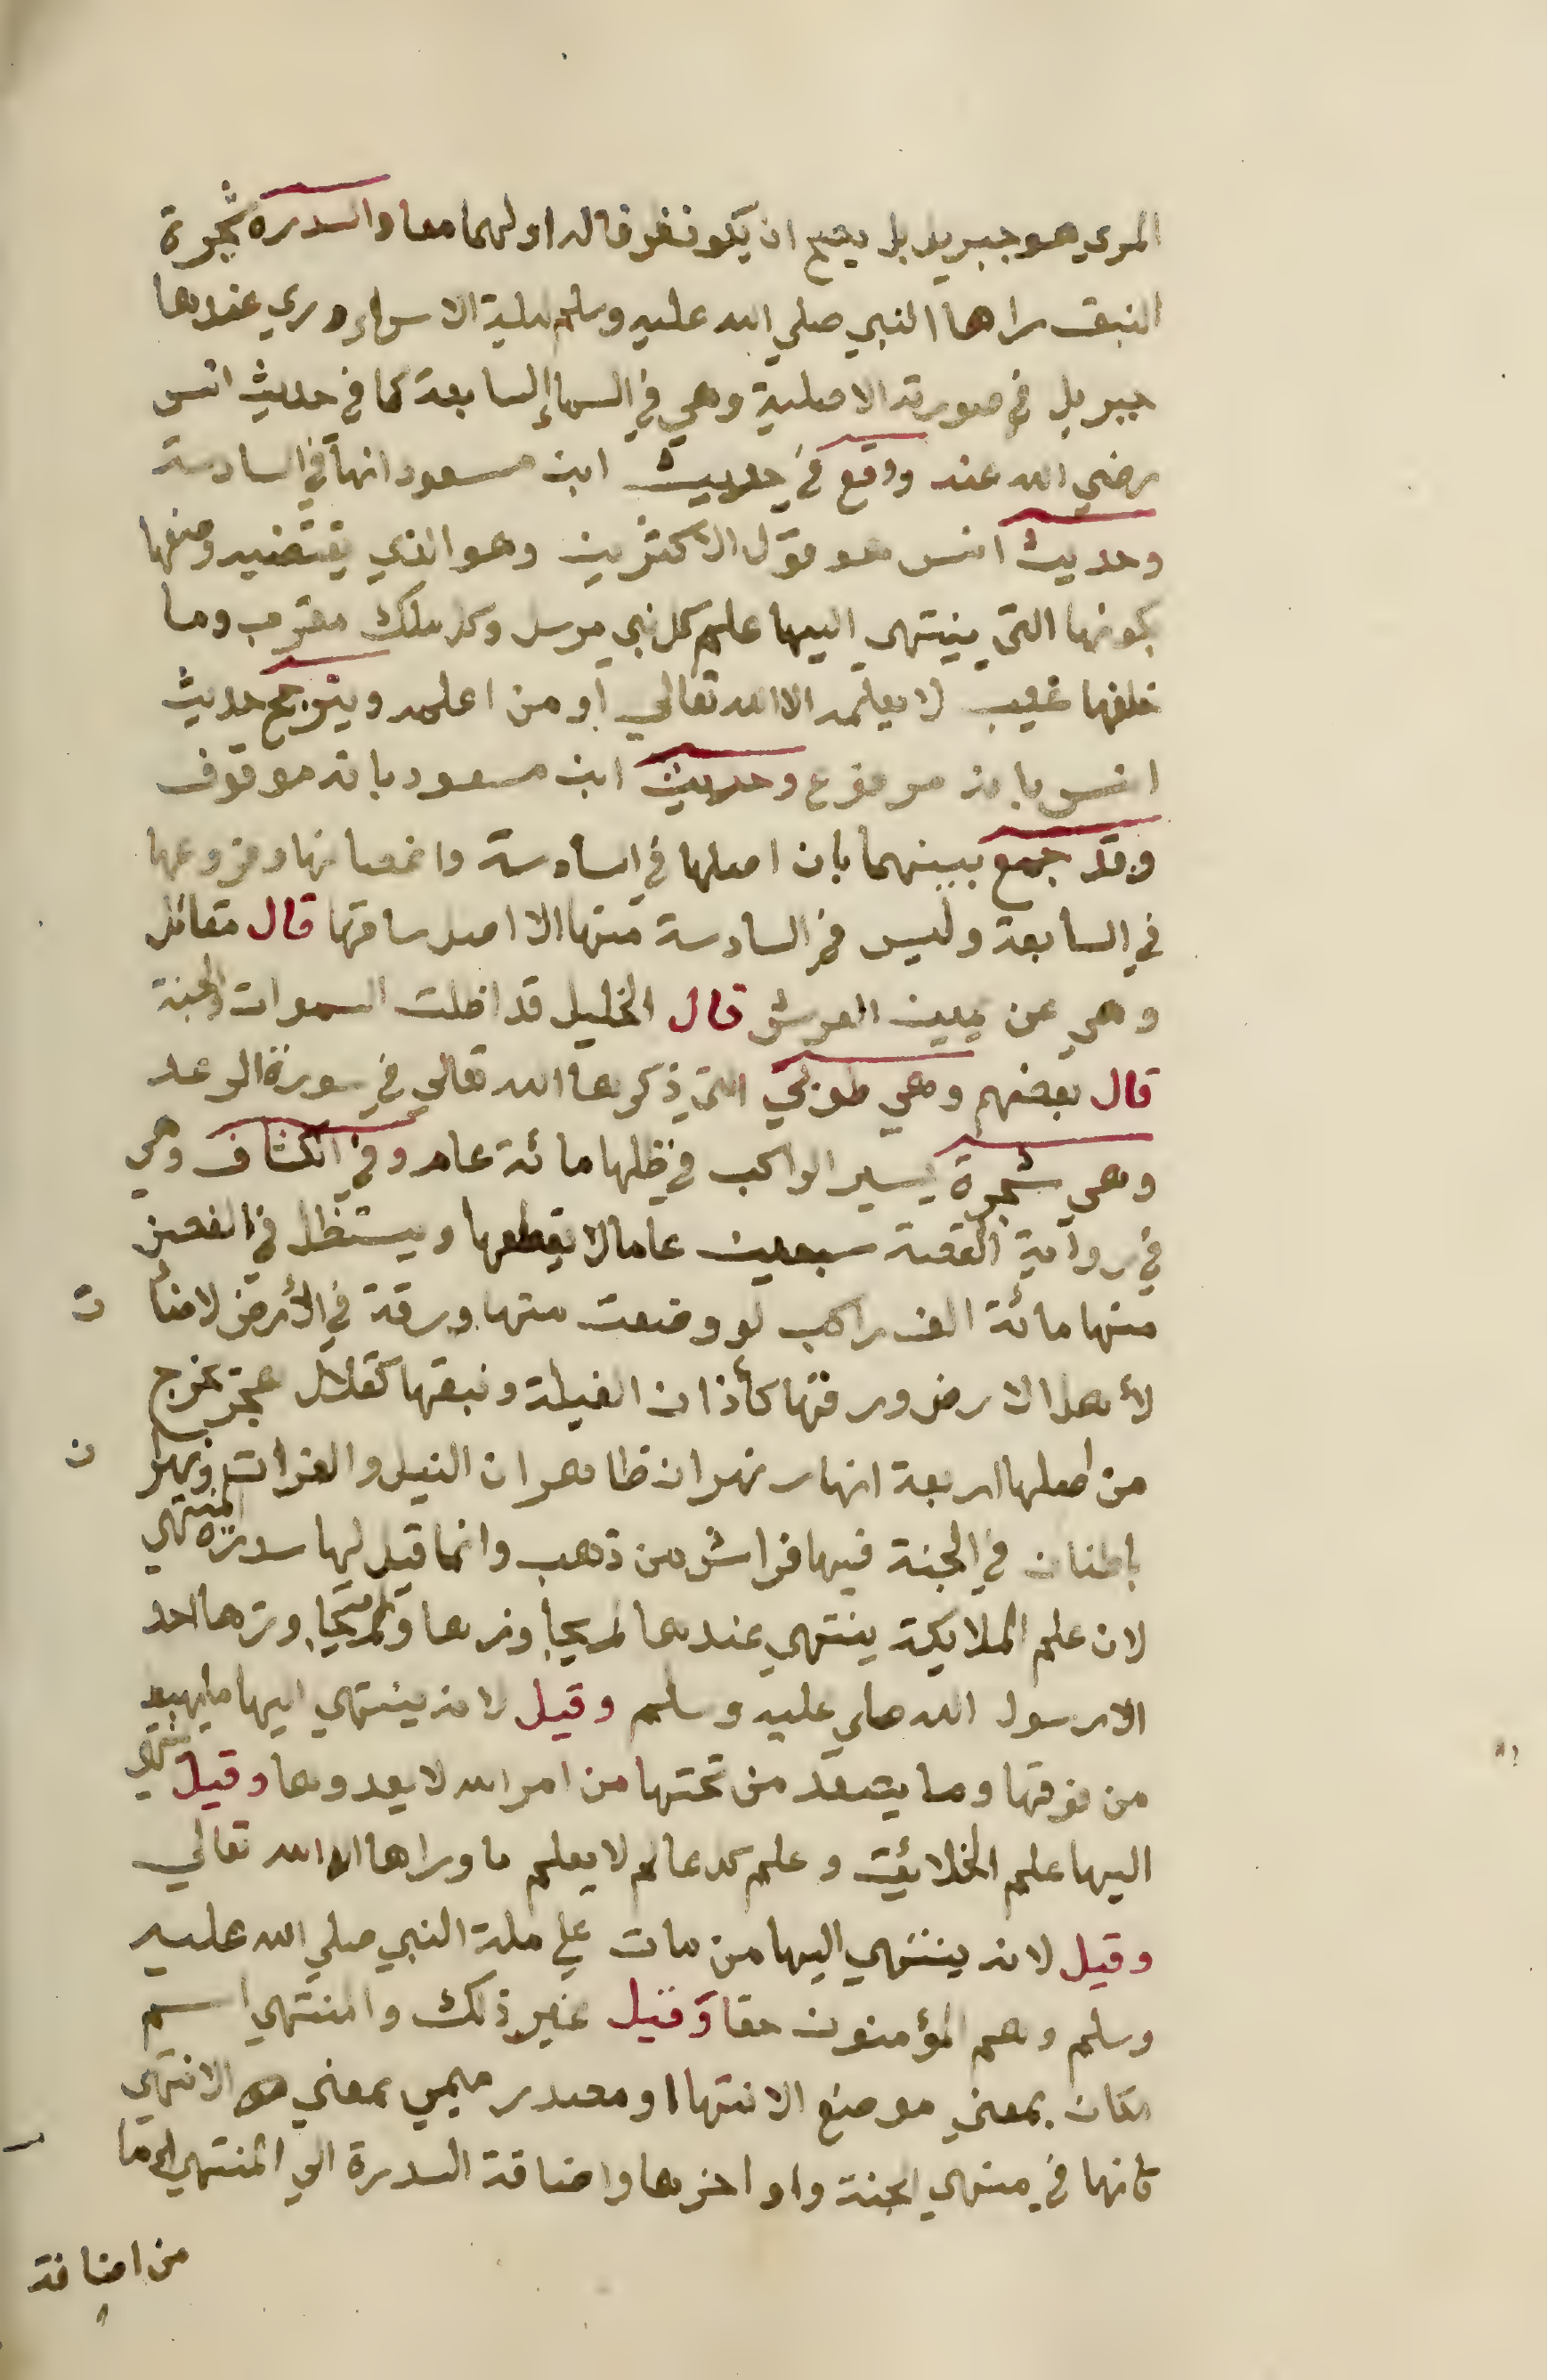 المرءي هو جبريل بل يصح ان يكون فر قاله اولهما معا والسدرة شجرة
النبق راها النبي صلي الله عليه وسلم ليلة الاسراء وري عندها
جبريل في صورته الاصلية وهي في السماء السابعة كما في حديث انس
رضي الله عنه ووقع في حديث ابن مسعود انها في السادسة
وحديث انس هو قول الاكثرين وهو الذي يقتضيه وصفها
بكونها التي ينتهي اليها علم كل نبي مرسل وكل ملك مقرب وما
خلفها غيب لا يعلمه الا الله تعالي او من اعلمه ويترجح حديث
انس بانه مرفوع وحديث ابن مسعود بانه موقوف
وقد جمع بينهما بان اصلها في السادسة واغصانها وفروعها
في السابعة وليس في السادسة منها الا اصل ساقها قال مقاتل
وهي عن يمين العرش قال الخليل قد اظلت السموات والجنة
قال بعضهم وهي طوبي التي ذكرها الله تعالي في سورة الرعد
وهي شجرة يسير الراكب في ظلها مائة عام وفي الكشاف وهي
في رواية القصة سبعين عاما لا يقطعها ويستظل في الغصن
منها مائة الف راكب لو وضعت منها ورقة في الأرض لاضأت
لأهل الارض ورقها كأذان الفيلة ونبقها كقلال هجر يخرج
من اصلها اربعة انهار نهران ظاهران النيل والفرات ونهران
باطنان في الجنة فيها فراش من ذهب وانما قيل لها سدرة المنتهي
لان علم الملايكة ينتهي عندها لم يجاوزها ولم يتجاوزها احد
الا رسول الله صلي عليه وسلم وقيل لانه ينتهي اليها ما يهبط
من فوقها وما يصعد من تحتها من امر الله لا يعدوها وقيل ينتهي
اليها علم الخلائق وعلم كل عالم لا يعلم ما وراها الا الله تعالي
وقيل لانه ينتهي اليها من مات علي ملة النبي صلي الله عليه
وسلم وهم المؤمنون حقا وقيل غير ذلك والمنتهي اسم
مكان بمعني موضع الانتها او مصدر ميمي بمعني الانتهي
كانها في منتهي الجنة واواخرها واضافة السدرة الي المنتهي اما
من اضافة